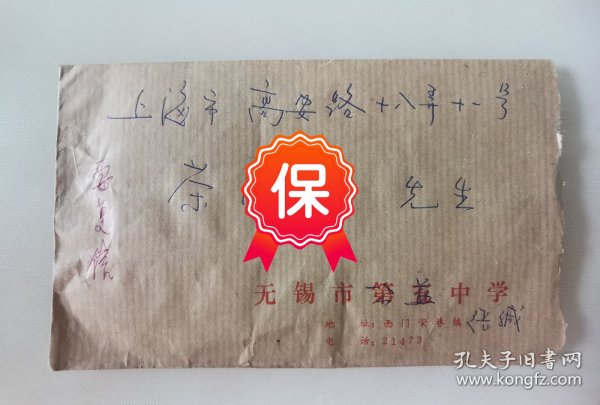 上海市 高安路十八弄十一号
先生
要复信
保
无锡市第益中学
地 址：西门荣巷镇
电 话：21473
缄
孔夫子旧书网
www.kongfz.com